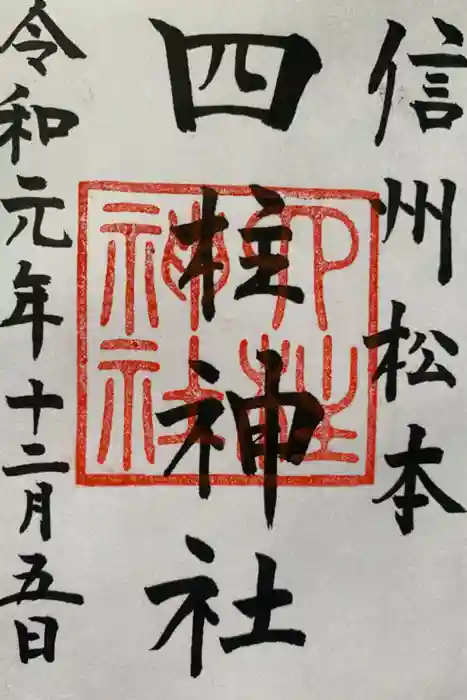 信州松本
四柱神社
四柱神社
令和元年十二月五日